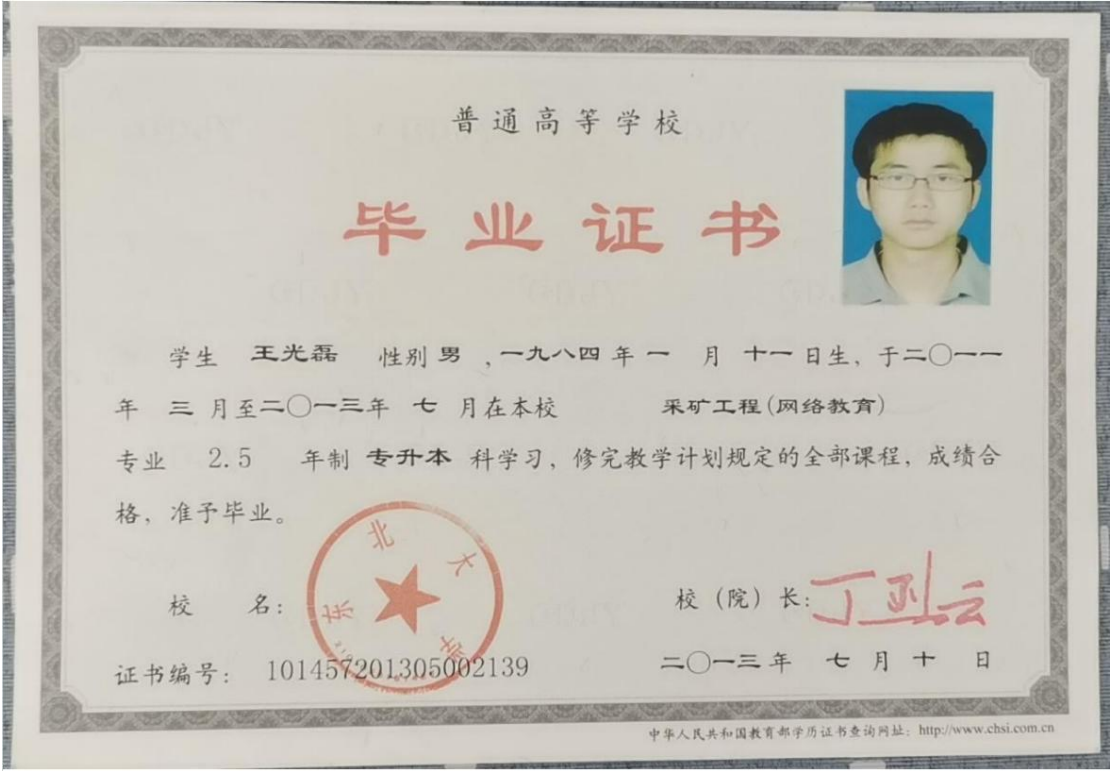 普通高等学校
毕业证书
学生 王光磊 性别 男 ,一九八四 年 一 月 十一 日生, 于二〇一一
年 三 月至二〇一三年 七 月在本校 采矿工程(网络教育)
专业 2.5 年制 专升本 科学习, 修完教学计划规定的全部课程, 成绩合
格, 准予毕业。
东北大学
校 名:
校 (院) 长:
证书编号: 101457201305002139
二〇一三年 七 月 十 日
中华人民共和国教育部学历证书查询网址: http://www.chsi.com.cn